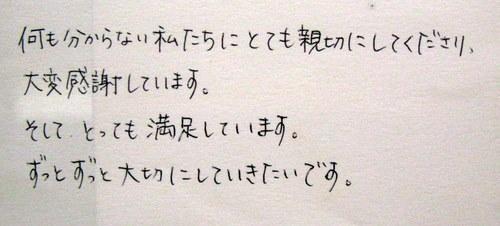 何も分からない私たちにとても親切にしてくださり、
大変感謝しています。
そして、とっても満足しています。
ずっとずっと大切にしていきたいです。